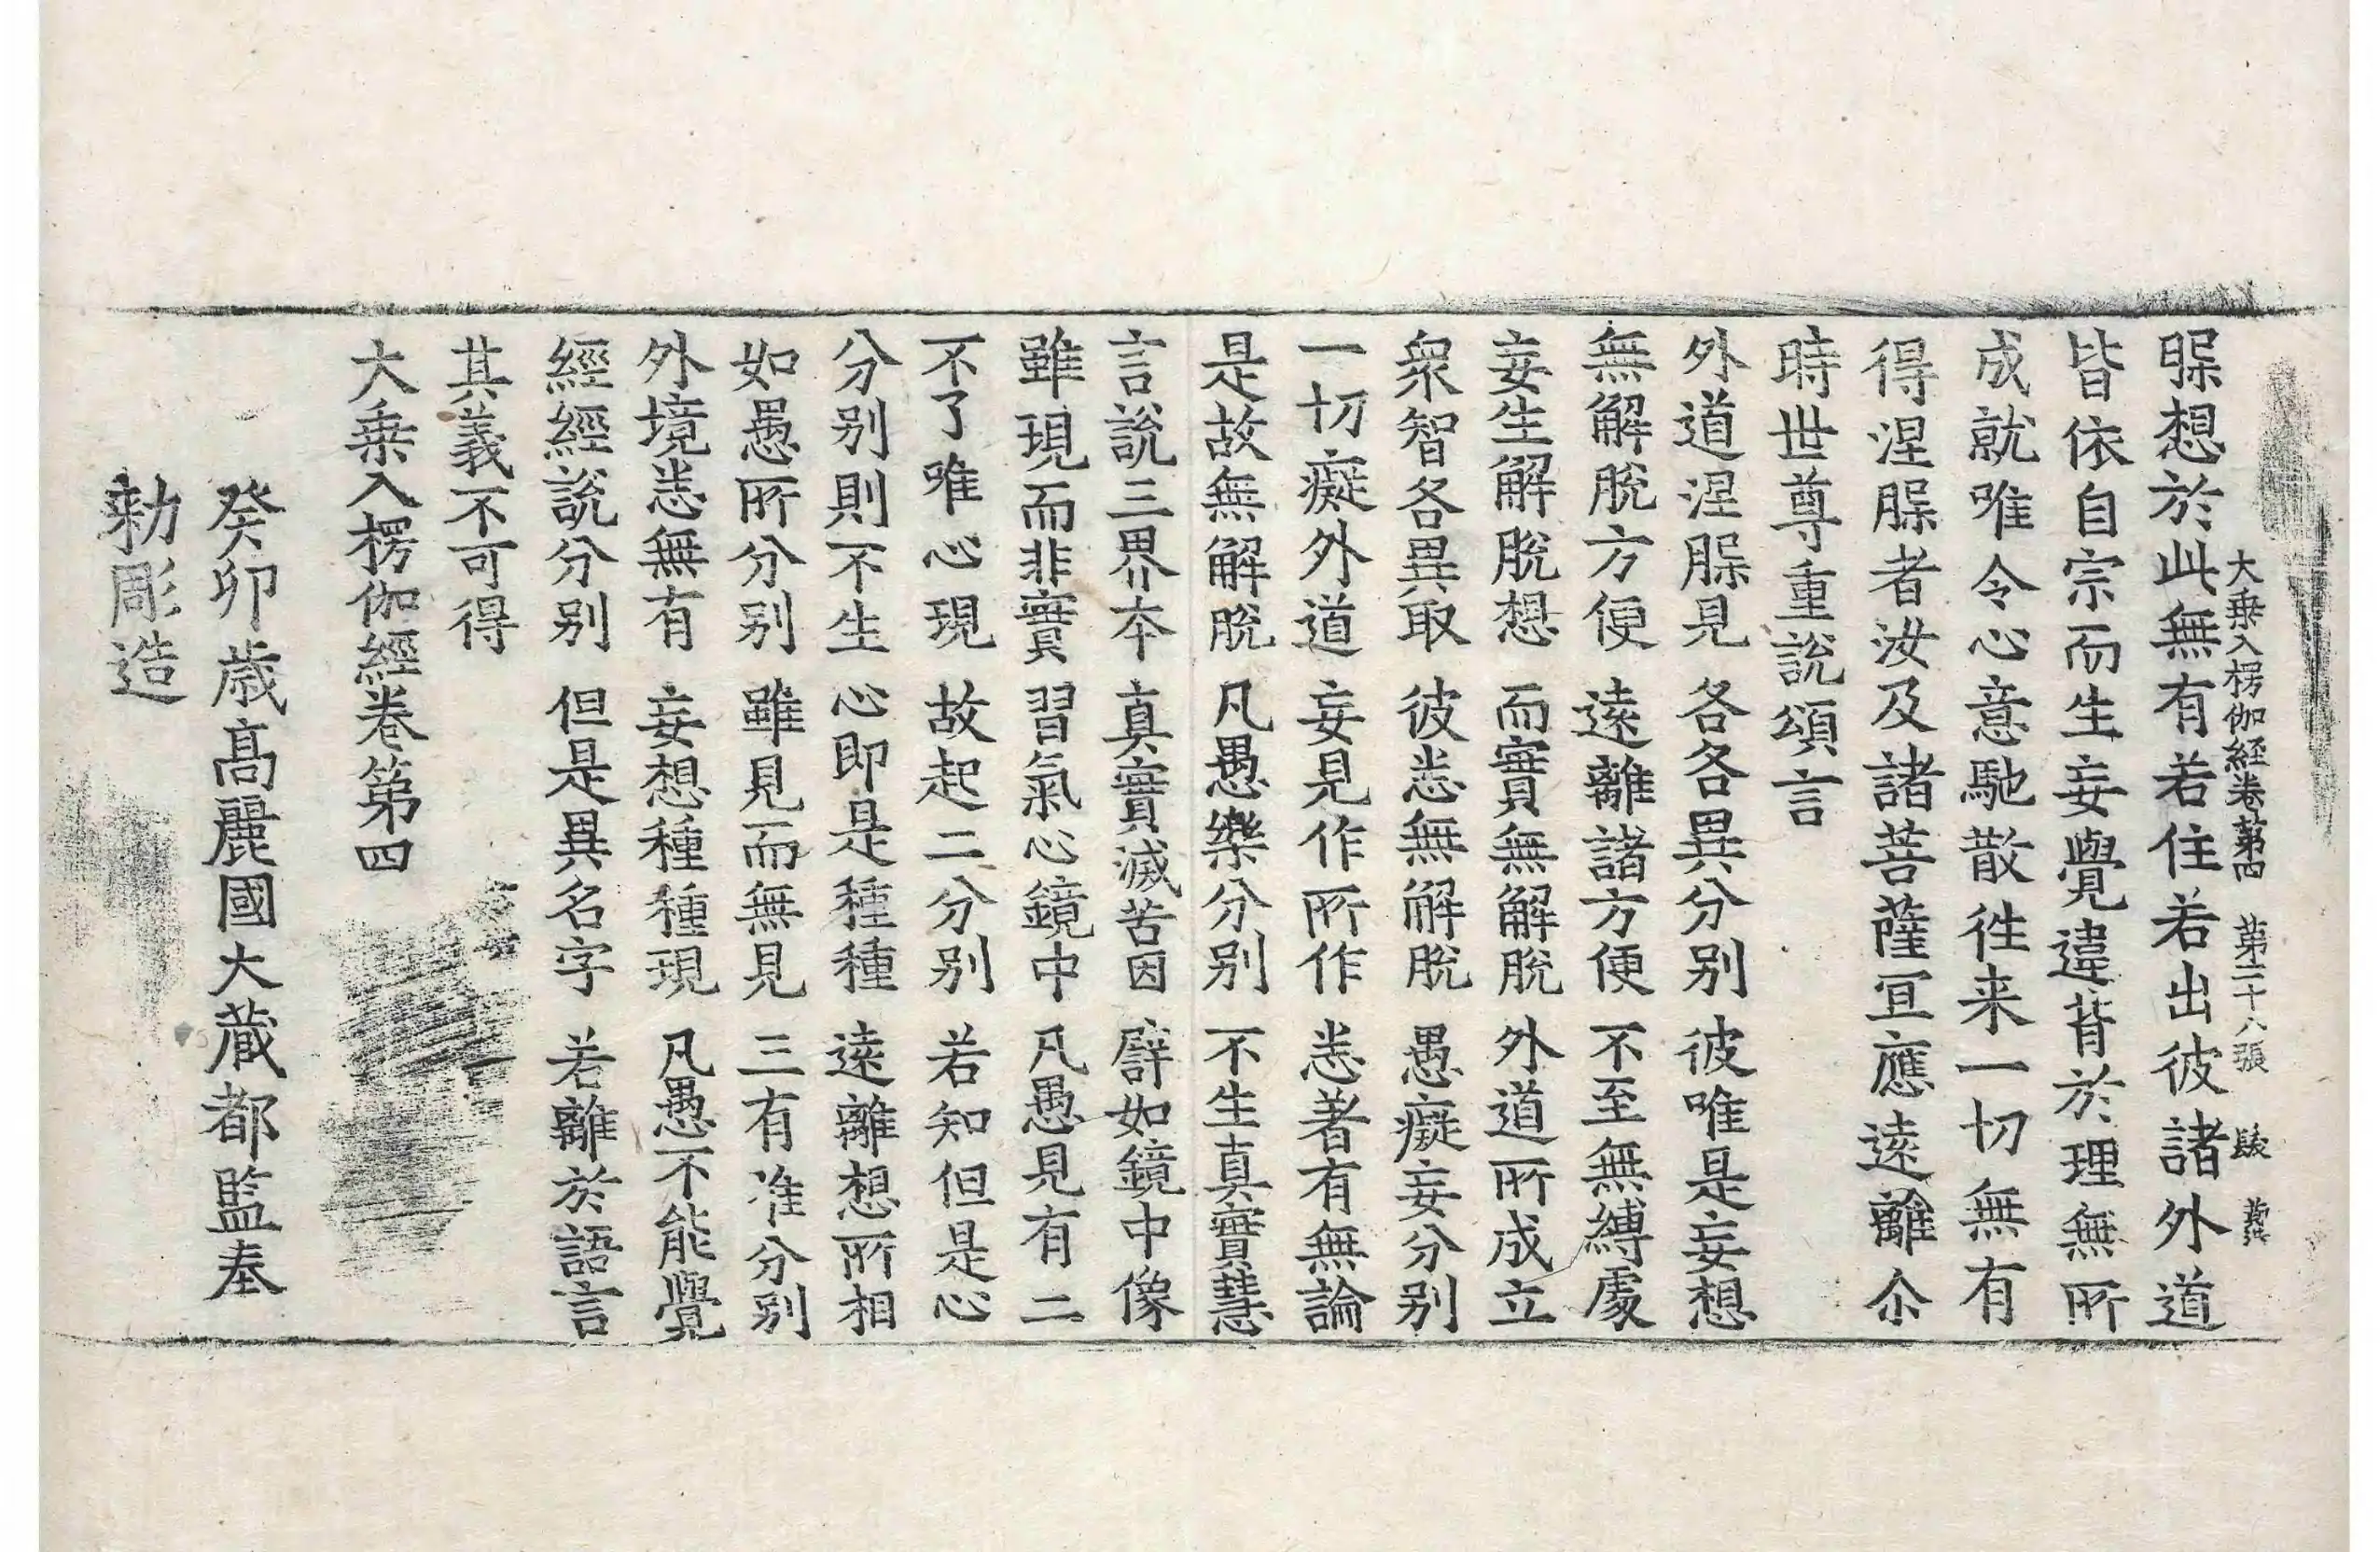 大乗入楞伽経卷第四 第二十八張
𣇵想於此無有若住若出彼諸外道
皆依自宗而生妄覺違背於理無所
成就唯令心意馳散往来一切無有
得涅𣇵者汝及諸菩薩宜應遠離尒
時世尊重說頌言
外道涅𣇵見 各各異分別 彼唯是妄想
無解脫方便 遠離諸方便 不至無縛處
妄生解脫想 而實無解脫 外道所成立
衆智各異取 彼悉無解脫 愚癡妄分別
一切癡外道 妄見作所作 悉著有無論
是故無解脫 凡愚樂分別 不生真實慧
言說三界本 真實滅苦因 譬如鏡中像
雖現而非實 習氣心鏡中 凡愚見有二
不了唯心現 故起二分別 若知但是心
分別則不生 心即是種種 遠離想所相
如愚所分別 雖見而無見 三有准分別
外境悉無有 妄想種種現 凡愚不能覺
經經說分別 但是異名字 若離於語言
其義不可得
大乗入楞伽經卷第四
癸卯歲高麗國大藏都監奉
勅彫造